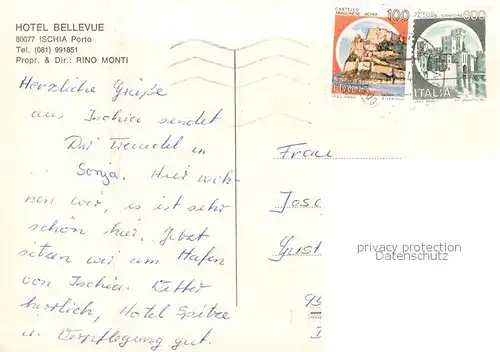 HOTEL BELLEVUE
80077 ISCHIA Porto
Tel. (081) 991851
Propr. & Dir.: RINO MONTI
CASTELLO
ARAGONESE ISCHIA
100
ITALIA
Herzliche Grüße
aus Ischia sendet
Dir Traudel u.
Sonja. Hier woh-
nen wir, es ist sehr
schön hier. Jetzt
sitzen wir am Hafen
von Ischia. Wetter
herrlich, Hotel Spitze
u. Verpflegung gut.
Frau
privacy protection
Datenschutz